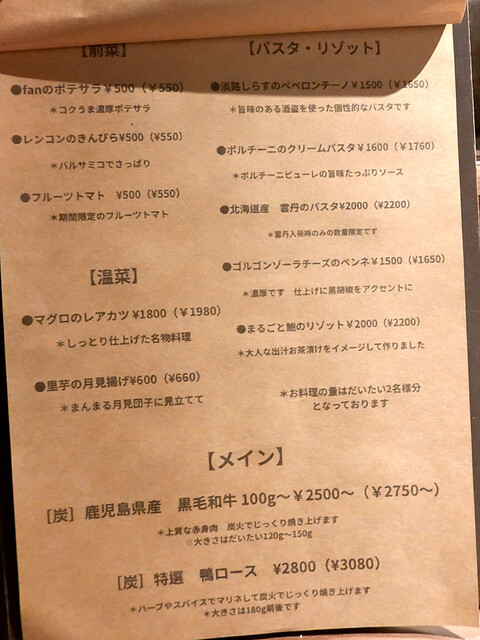 【前菜】
●fanのポテサラ¥500（¥550）
＊コクうま濃厚ポテサラ
●レンコンのきんぴら¥500（¥550）
＊バルサミコでさっぱり
●フルーツトマト　¥500（¥550）
＊期間限定のフルーツトマト
【温菜】
●マグロのレアカツ ¥1800（￥1980）
＊しっとり仕上げた名物料理
●里芋の月見揚げ¥600（¥660）
＊まんまる月見団子に見立てて
【パスタ・リゾット】
●淡路しらすのペペロンチーノ¥1500（¥1650）
＊旨味のある酒盗を使った個性的なパスタです
●ポルチーニのクリームパスタ¥1600（￥1760）
＊ポルチーニピューレの旨味たっぷりソース
●北海道産　雲丹のパスタ¥2000（¥2200）
＊雲丹入荷時のみの数量限定です
●ゴルゴンゾーラチーズのペンネ¥1500（¥1650）
＊濃厚です　仕上げに黒胡椒をアクセントに
●まるごと鮑のリゾット¥2000（¥2200）
＊大人な出汁お茶漬けをイメージして作りました
＊お料理の量はだいたい2名様分
となっております
【メイン】
［炭］鹿児島県産　黒毛和牛 100g～￥2500～（￥2750～）
＊上質な赤身肉　炭火でじっくり焼き上げます
※大きさはだいたい120g～150g
［炭］特選　鴨ロース　¥2800（¥3080）
＊ハーブやスパイスでマリネして炭火でじっくり焼き上げます
＊大きさは180g前後です